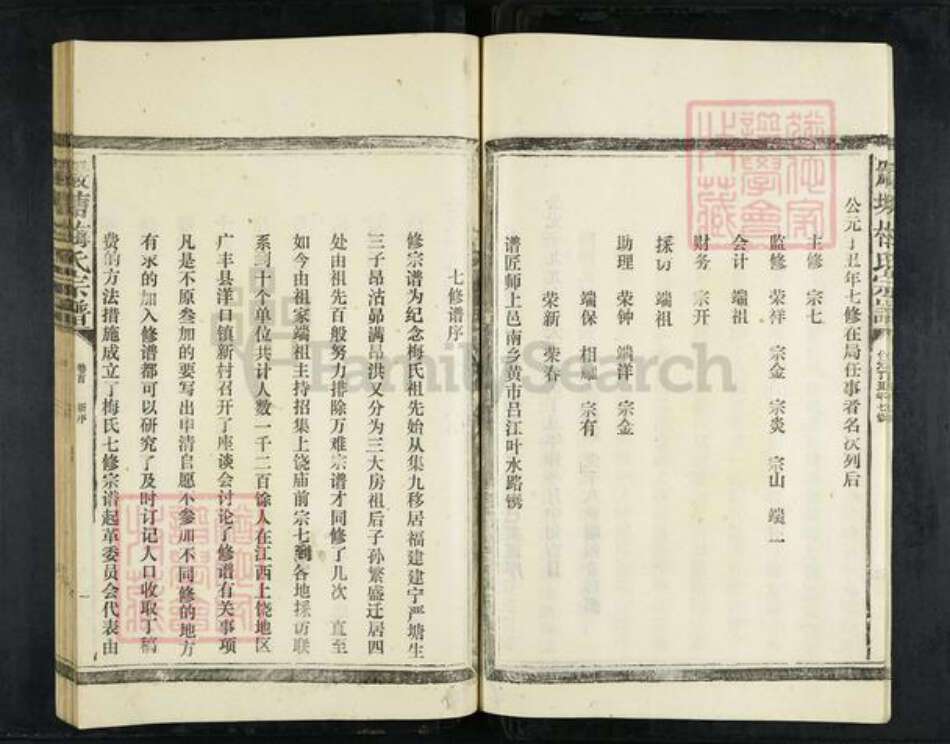 公元丁丑年七修在局任事者名次列后
主修 宗七
监修 荣祥 宗金 宗炎 宗山 端一
会计 端祖
财务 宗开
採访 端祖
助理 荣钟 端洋 宗金
端保 相 宗有
荣新 荣春
谱匠师上邑南乡黄市吕江叶水路镌
七修谱序
修宗谱为纪念梅氏祖先始从集九移居福建建宁严塘生
三子昂沽昂满昂洪又分为三大房祖后子孙繁盛迁居四
处由祖先百般努力排除万难宗谱才同修了几次 直至
如今由祖家端祖主持招集上饶庙前宗七到各地採访联
系到十个单位共计人数一千二百馀人在江西上饶地区
广丰县洋口镇新村召开了座谈会讨论了修谱有关事项
凡是不原叁加的要写出申清自愿不参加不同修的地方
有求的加入修谱都可以研究了及时订记人口收取丁稿
费的方法措施成立了梅氏七修宗谱起革委员会代表由
严塘梅氏宗譜
卷首
新序
一
嚴塘梅氏宗譜
FamilySearch